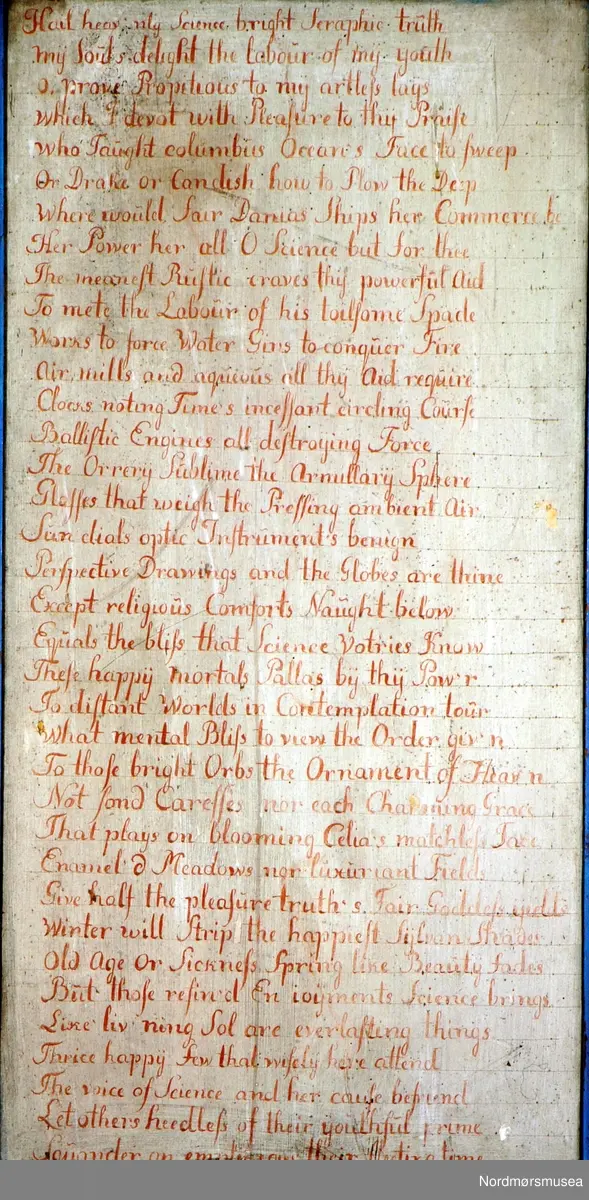 Hail heav'nly Science bright Seraphic truth
my Souls delight the labour of my youth
o. prove Propitious to my artleſs lays
which I devot with Pleaſure to thy Praiſe
who Taught columbus Ocean's Face to ſweep
Or Drake or Candish how to Plow the Deep
Where would fair Danias Ships her Commerce be
Her Power her all O Science but for thee
The meaneſt Ruſtic craves thy powerful Aid
To mete the Labour of his toilſome Spade
Works to force Water Gins to conquer Fire
Air mills and aqueous all thy Aid require
Clocks noting Time's inceſſant circling Courſe
Balliſtic Engines all deſtroying Force
The Orrery Sublime the Armillary Sphere
Glaſſes that weigh the Preſſing ambient Air
Sun dials optic Inſtrument's benign
Perſpective Drawings and the Globes are thine
Except religious Comforts Naught below
Equals the bliſs that Science Votries Know
Theſe happy mortals Pallas by thy Pow'r
To diſtant Worlds in Contemplation tour
What mental Bliſs to view the Order giv'n
To thoſe bright Orbs the Ornament of Heav'n
Not fond Careſſes nor each Charming Grace
That plays on blooming Celia's matchleſs Face
Enamel'd Meadows nor luxuriant Fields
Give half the pleaſure truth's Fair Goddeſs
Winter will Strip the happieſt Sylvan Shades
Old Age Or Sickneſs Spring like Beauty fades
But thoſe refin'd En ioyments Science brings
Like liv'ning Sol are everlaſting things
Thrice happy Few that wiſely here attend
The voice of Science and her cauſe befriend
Let others heedleſs of their youthful prime
Squander on their time
Nordmørsmusea